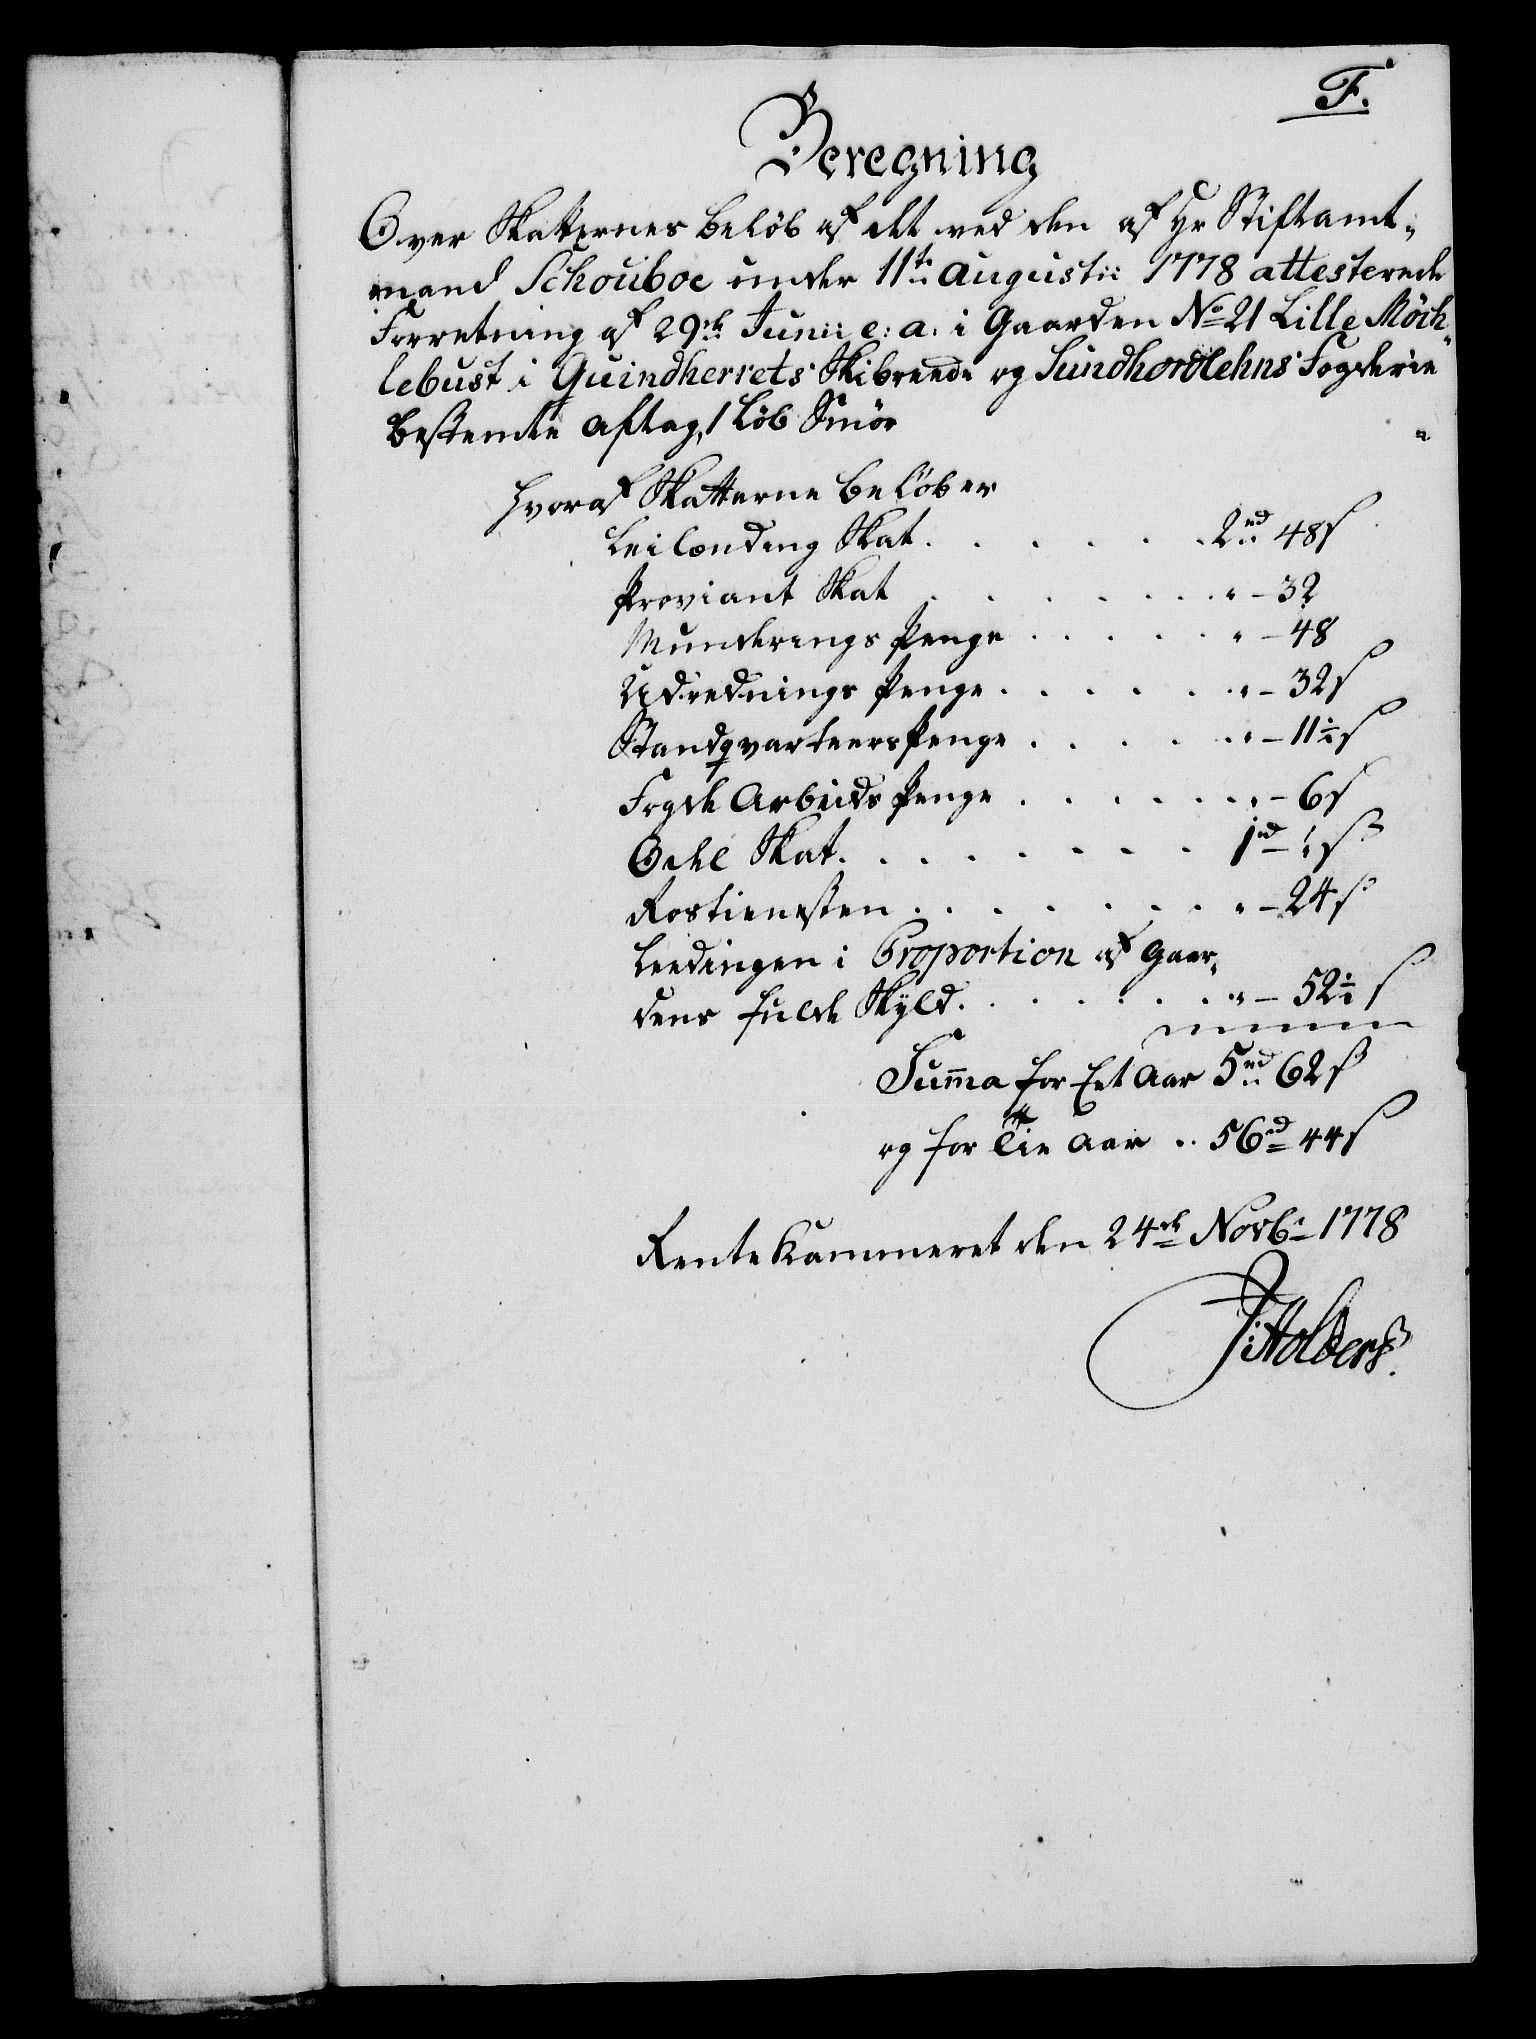 F.
Beregning
Over Skatternes beløb af det ved den af Hr Stiftamt„
mand Schouboe under 11te Augustii 1778 attesterede
Forretning af 29de Junii e: a: i Gaarden No 21 Lille Möch„
lebust i Quindherrets Skibreede og Sundhordlehns Fogderie
bestemte Aftag, 1 Løb Smör
hvoraf Skatterne beløber
Leilænding Skat . . . . . . . 2rd 48s
Proviant Skat . . . . . . . . " – 32
Munderings Penge . . . . . " – 48
Udrednings Penge . . . . . . " – 32s
Standqvarteers Penge . . . . . . " – 11½s
Fogde Arbeids Penge . . . . . . " – 6s
Odel Skat . . . . . . . . 1rd – " s
Rostienesten . . . . . . . . " – 24s
Leedingen i Proportion af Gaar„
dens fulde Skyld . . . . . . . " – 52½ s
Summa for Eet Aar 5rd 62s
og for Tie Aar .. 56rd 44s
Rente Kammeret den 24de Novbr 1778